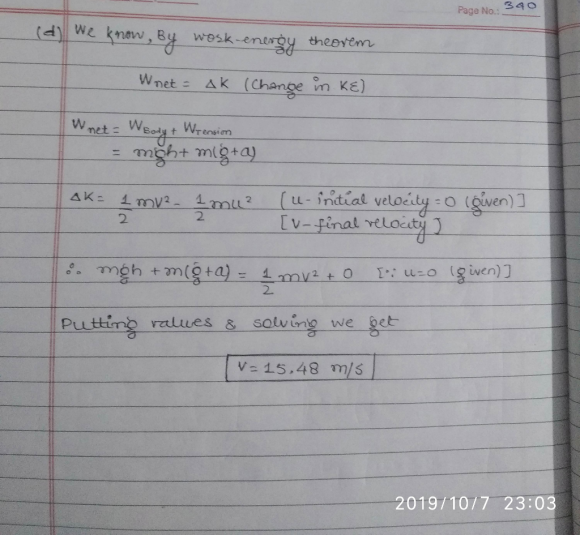 Page No.: 340
(d) We know, By work-energy theorem
Wnet = ΔK (Change in KE)
Wnet = WBody + WTension
= mgh + m(g+a)
ΔK = 1/2 mv² - 1/2 mu² [u-initial velocity = 0 (given)]
[v-final velocity]
∴ mgh + m(g+a) = 1/2 mv² + 0 [∵ u=0 (given)]
Putting values & solving we get
V = 15.48 m/s
2019/10/7 23:03